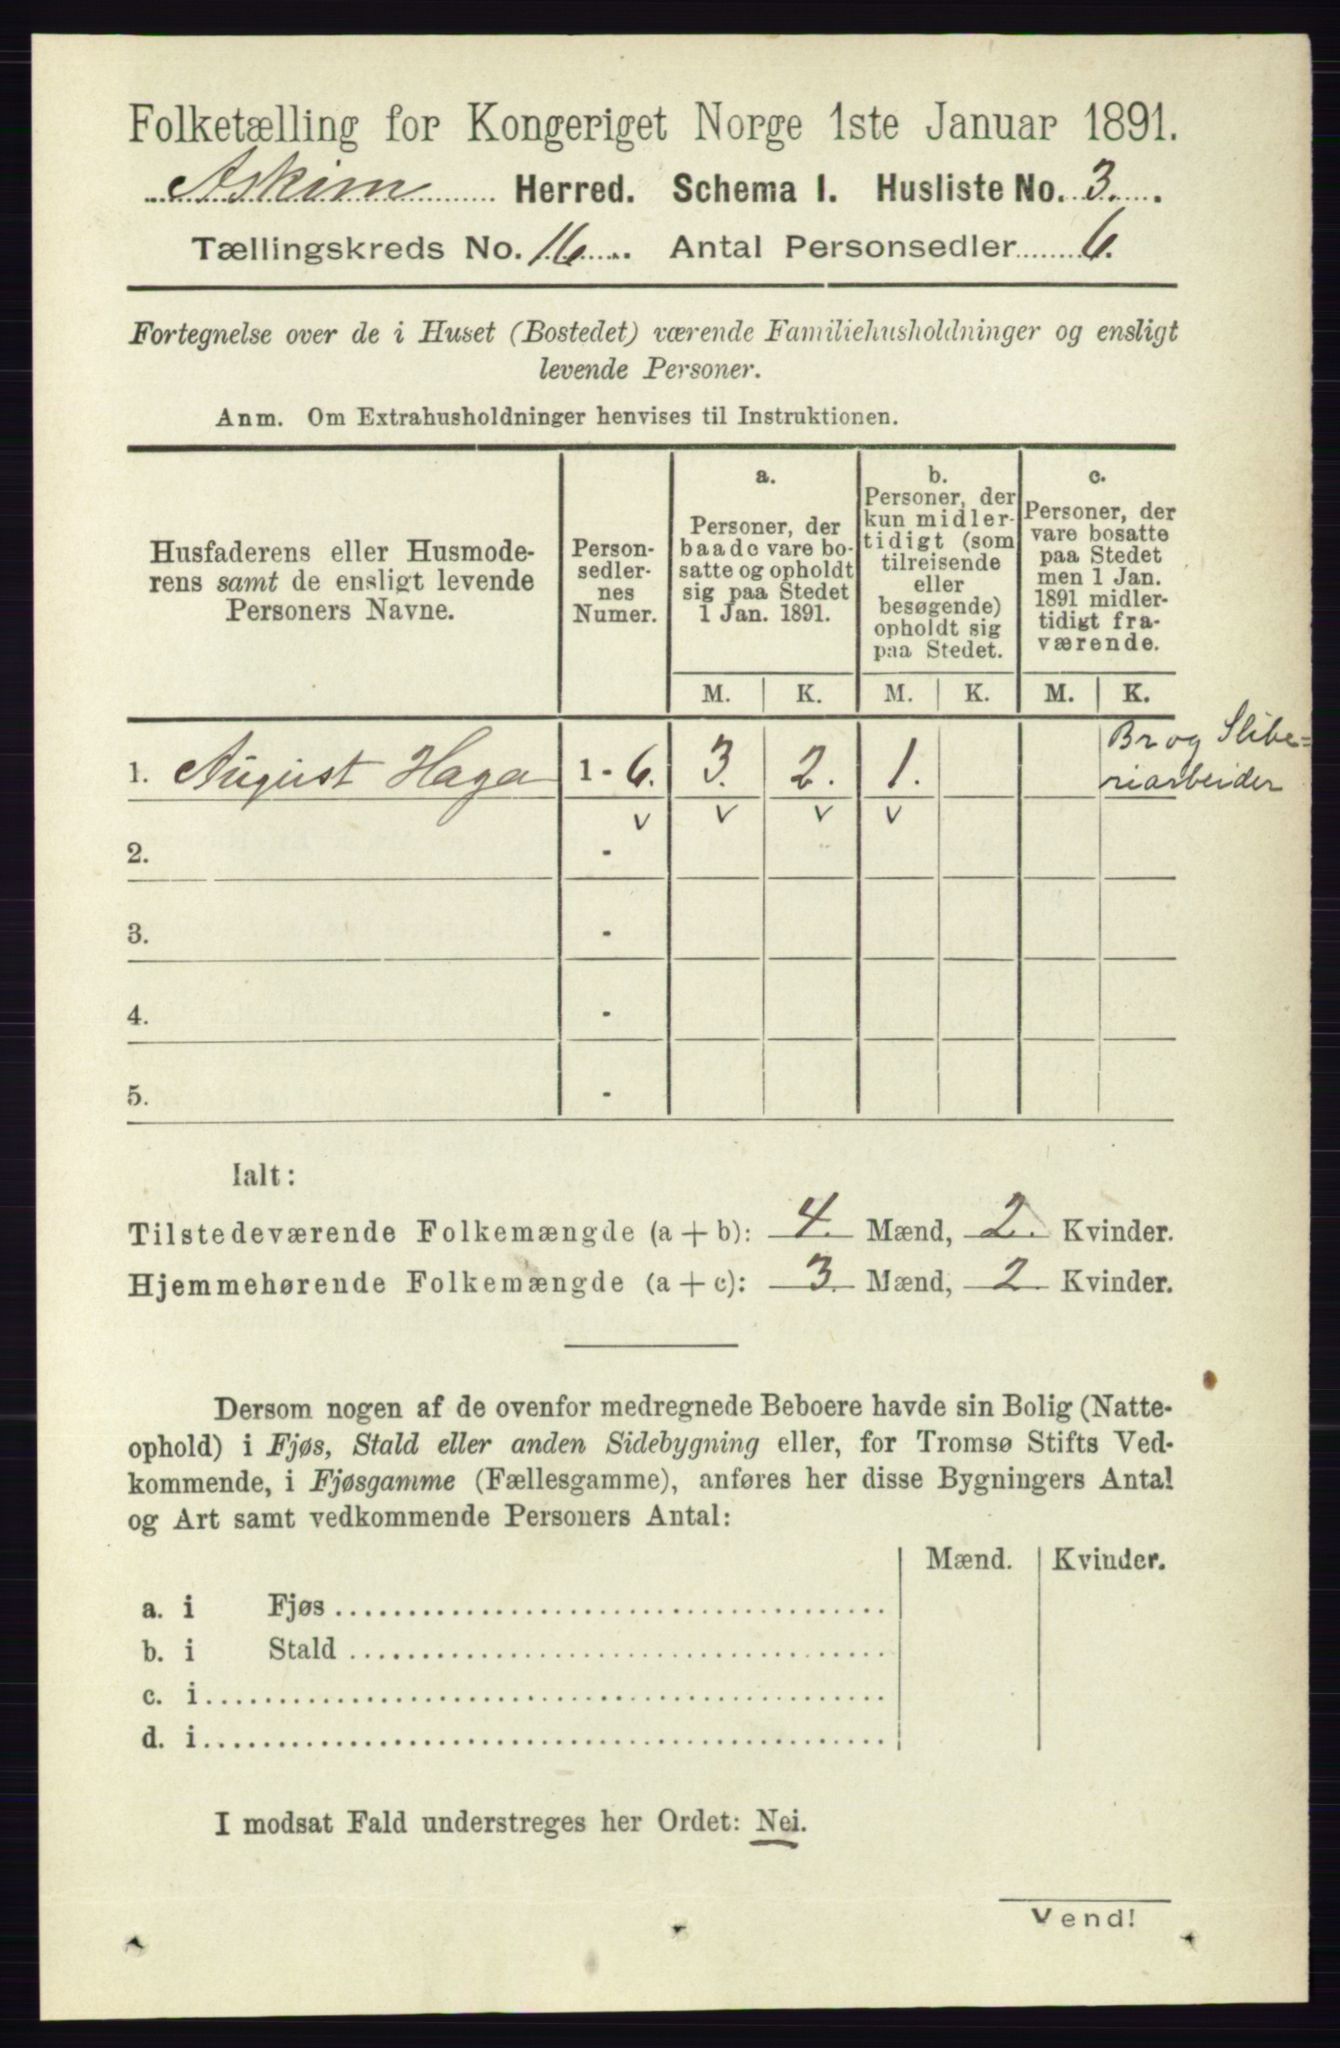 Folketælling for Kongeriget Norge 1ste Januar 1891.
Askim Herred. Schema I. Husliste No. 3.
Tællingskreds No. 16. Antal Personsedler 6.
Fortegnelse over de i Huset (Bostedet) værende Familiehusholdninger og ensligt
levende Personer.
Anm. Om Extrahusholdninger henvises til Instruktionen.
Husfaderens eller Husmode-
rens samt de ensligt levende
Personers Navne.
Person-
sedler-
nes
Numer.
a.
Personer, der
baade vare bo-
satte og opholdt
sig paa Stedet
1 Jan. 1891.
b.
Personer, der
kun midler-
tidigt (som
tilreisende
eller
besøgende)
opholdt sig
paa Stedet.
c.
Personer, der
vare bosatte
paa Stedet
men 1 Jan.
1891 midler-
tidigt fra-
værende.
M. K. M. K. M. K.
1. August Haga 1 - 6. 3. 2. 1.
Br og Slibe-
riarbeider
v v v v
2. -
3. -
4. -
5. -
Ialt:
Tilstedeværende Folkemængde (a + b): 4. Mænd, 2. Kvinder.
Hjemmehørende Folkemængde (a + c): 3. Mænd, 2 Kvinder.
Dersom nogen af de ovenfor medregnede Beboere havde sin Bolig (Natte-
ophold) i Fjøs, Stald eller anden Sidebygning eller, for Tromsø Stifts Ved-
kommende, i Fjøsgamme (Fællesgamme), anføres her disse Bygningers Antal
og Art samt vedkommende Personers Antal:
Mænd. Kvinder.
a. i Fjøs
b. i Stald
c. i
d. i
I modsat Fald understreges her Ordet: Nei.
Vend!